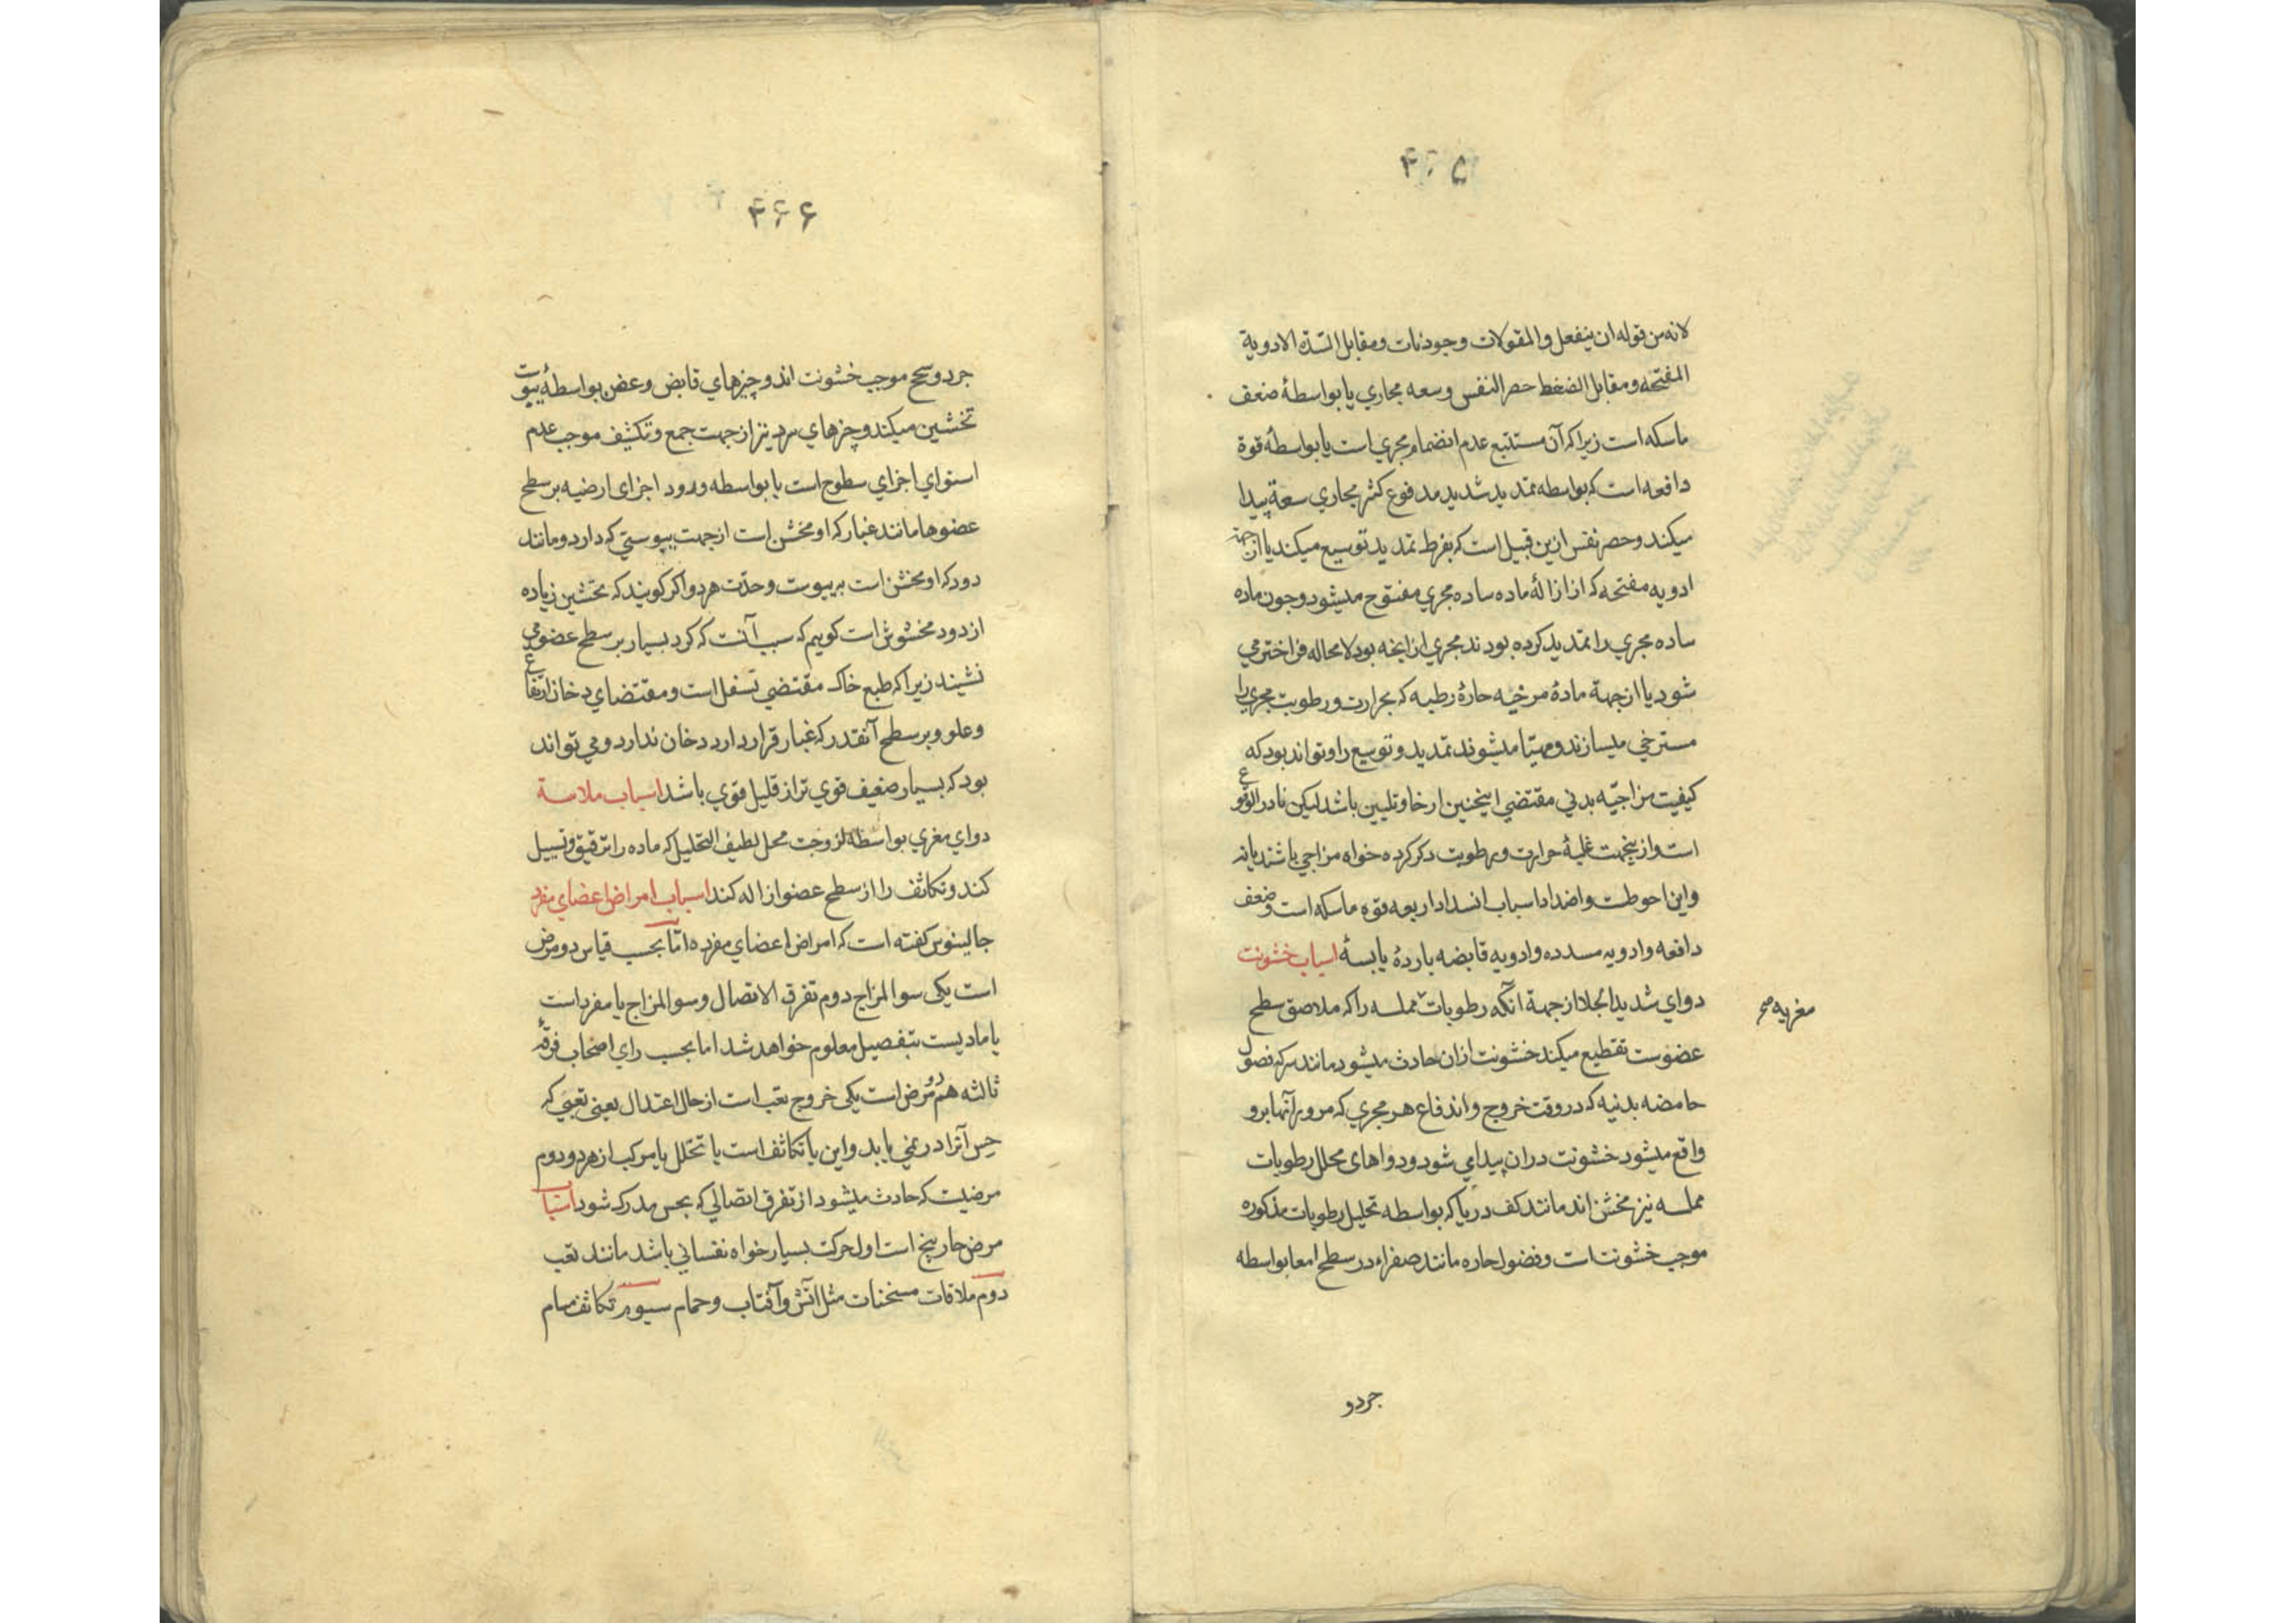 ۴۶۵
لانه من قوله ان ینفعل والمقولات وجودیات ومقابل السدّه الادویة
المفتحه ومقابل الضغط حصر النفس وسعه مجاري یا بواسطهٔ ضعف
ماسکه است زیرا که آن مستتبع عدم انضمام مجري است یا بواسطهٔ قوة
دافعه است که بواسطه تمدید شدید مدفوع کثیر مجاري سعة پیدا
میکند وحصر نفس ازین قبیل است که بفرط تمدید توسیع میکند یا از جهة
ادویه مفتحه که از ازالهٔ ماده ساده مجري مفتوح میشود وچون ماده
ساده مجري را تمدید کرده بودند مجري از انچه بود لا محاله فراختر مي
شود یا از جهة مادهٔ مرخیه حارهٔ رطبه که بحرارت ورطوبت مجري را
مسترخي میسازند ومهیّا میشوند تمدید وتوسیع را وتواند بود که
کیفیت مزاجیّه بدني مقتضي اینچنین ارخا وتلیین باشد لیکن نادر الوقوع
است وازینجهت غلبهٔ حرارت ورطوبت ذکر کرده خواه مزاجي باشند یا نه
واین احوطست واضداد اسباب انسداد اربعه قوه ماسکه است وضعف
دافعه وادویه مسدده وادویه قابضه باردهٔ یابسهٔ اسباب خشونت
دواي شدید الجلا از جهة آنکه رطوبات مملسه را که ملاصق سطح
مغریه صح
عضوست تقطیع میکند خشونت ازان حادث میشود مانند سرکه فضول
حامضه بدنیه که در وقت خروج واندفاع هر مجري که مرور آنها برو
واقع میشود خشونت دران پیدا مي شود ودواهای محلل رطوبات
مملسه نیز مخشن اند مانند کف دریا که بواسطه تحلیل رطوبات مذکوره
موجب خشونت است وفضول حاره مانند صفراء در سطح امعا بواسطه
جرد و
۴۶۶
جرد وسحج موجب خشونت اند وچیزهاي قابض وعفص بواسطهٔ یبوست
تخشین میکند وچیزهاي سرد نیز از جهت جمع وتکثیف موجب عدم
استواي اجزاي سطوح است یا بواسطه ورود اجزای ارضیه بر سطح
عضوها مانند غبار که او مخشن است از جهت یبوستي که دارد ومانند
دود که او مخشن است بر یبوست وحدّت هر دو اکر کویند که تخشین زیاده
از دود مخشوش است کوییم که سبب آنست که کرد بسیار بر سطح عضو مي
نشیند زیرا که طبع خاک مقتضي تسفل است ومقتضاي دخان ارتفاع
وعلو وبر سطح آنقدر که غبار قرار دارد دخان ندارد ومي تواند
بود که بسیار ضعیف قوي تر از قلیل قوي باشد اسباب ملاسة
دواي مغري بواسطه لزوجت محلل لطیف التحلیل که ماده را ترقیق وتسییل
کند وتکاثف را از سطح عضو ازاله کند اسباب امراض اعضاي مفرد
جالینوس کفته است که امراض اعضاي مفرده امّا بحسب قیاس دو مرض
است یکی سوالمزاج دوم تفرق الاتصال وسوالمزاج یا مفرد است
یا مادیست بتفصیل معلوم خواهد شد اما بحسب راي اصحاب فرقهٔ
ثالثه هم دو مرض است یکی خروج تعب است از حال اعتدال یعنی تعبي که
حس آنرا در نمي یابد واین یا تکاثف است یا تخلل یا مرکب از هر دو دوم
مرضیست که حادث میشود از تفرق اتصالي که بحس مدرک شود اسباب
مرض حار پنج است اول حرکت بسیار خواه نفساني باشد مانند تعب
دوم ملاقات مسخنات مثل آتش وآفتاب وحمام سیوم تکاثف مسام